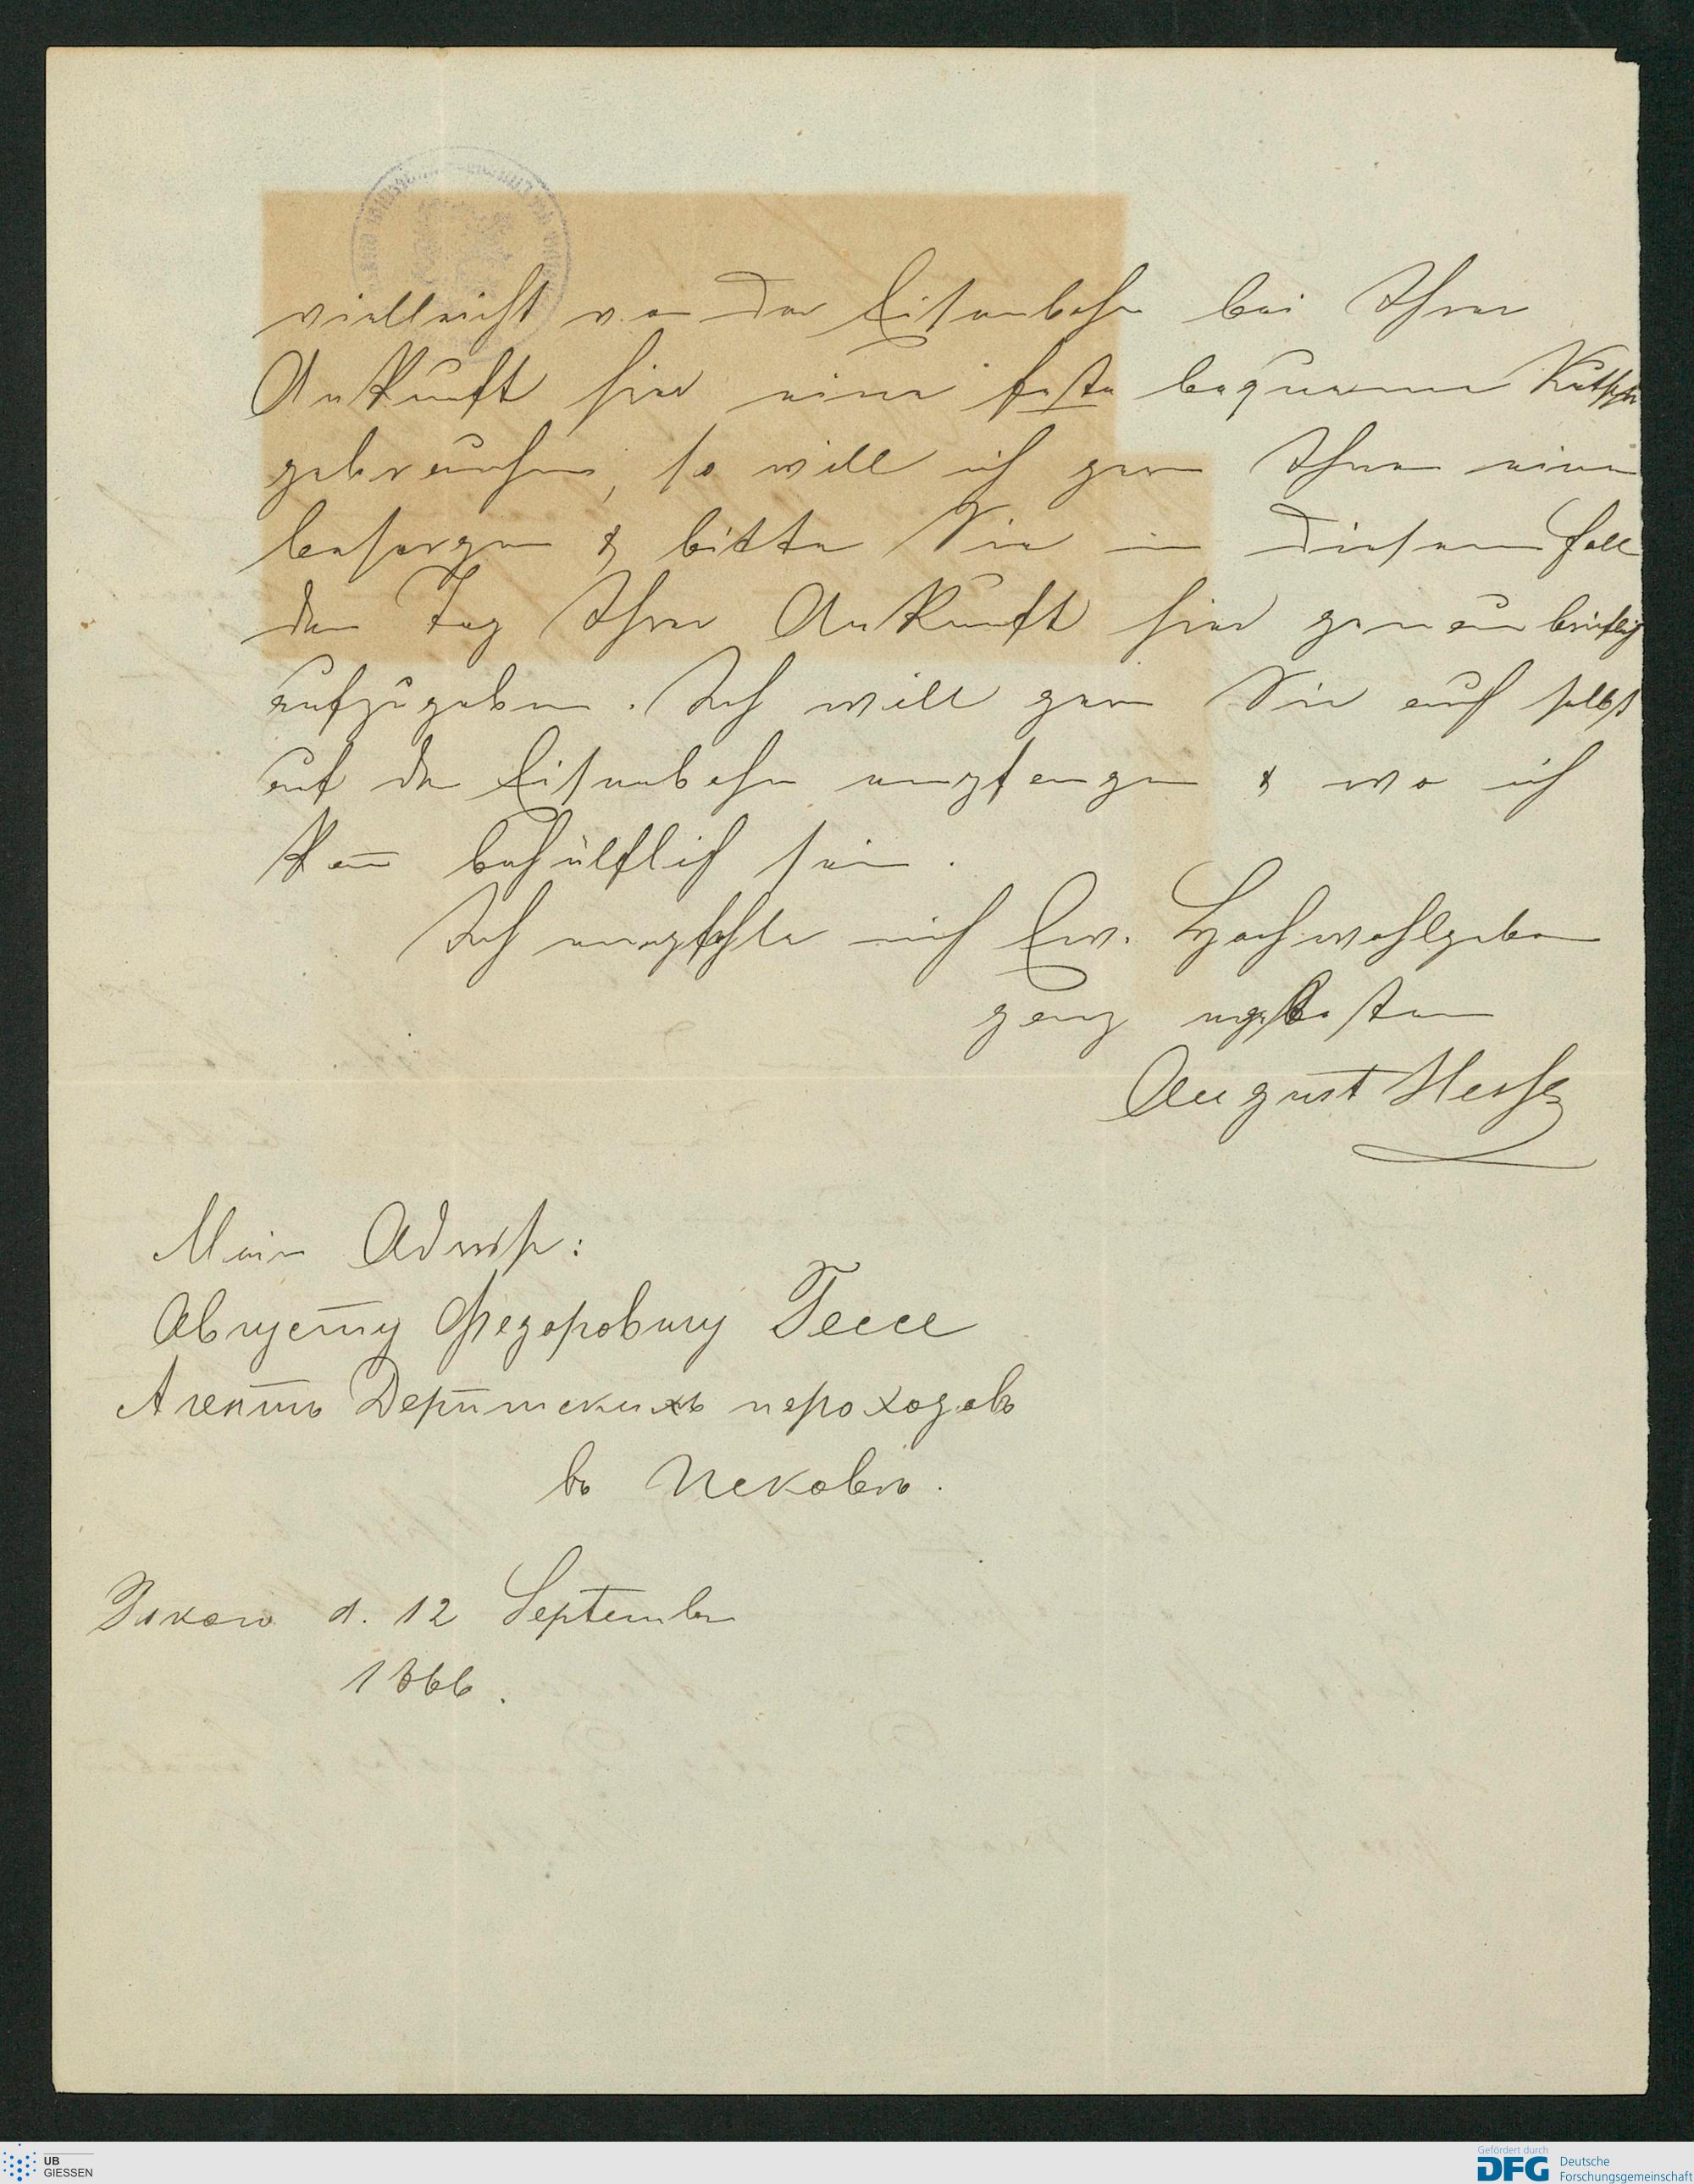 vielleicht von der Eisenbahn bei Ihrer
Ankunft hier eine feste bequeme Kutsche
gebrauchen, so will ich gern Ihnen eine
besorgen & bitte Sie in diesem Fall
den Tag Ihrer Ankunft hier genau brieflich
aufzugeben. Ich will gern Sie auch selbst
auf der Eisenbahn empfangen & wo ich
kan̄ behülflich sein.
Ich empfehle mich Ew. Hochwohlgeboren
ganz ergebenst
August Hesse
Meine Adresse:
Августу Федоровичу Гессе
Агентъ Дерптскихъ пароходовъ
въ Псковѣ.
Pskow d. 12 September
1866.
UB
GIESSEN
Gefördert durch
DFG Deutsche
Forschungsgemeinschaft